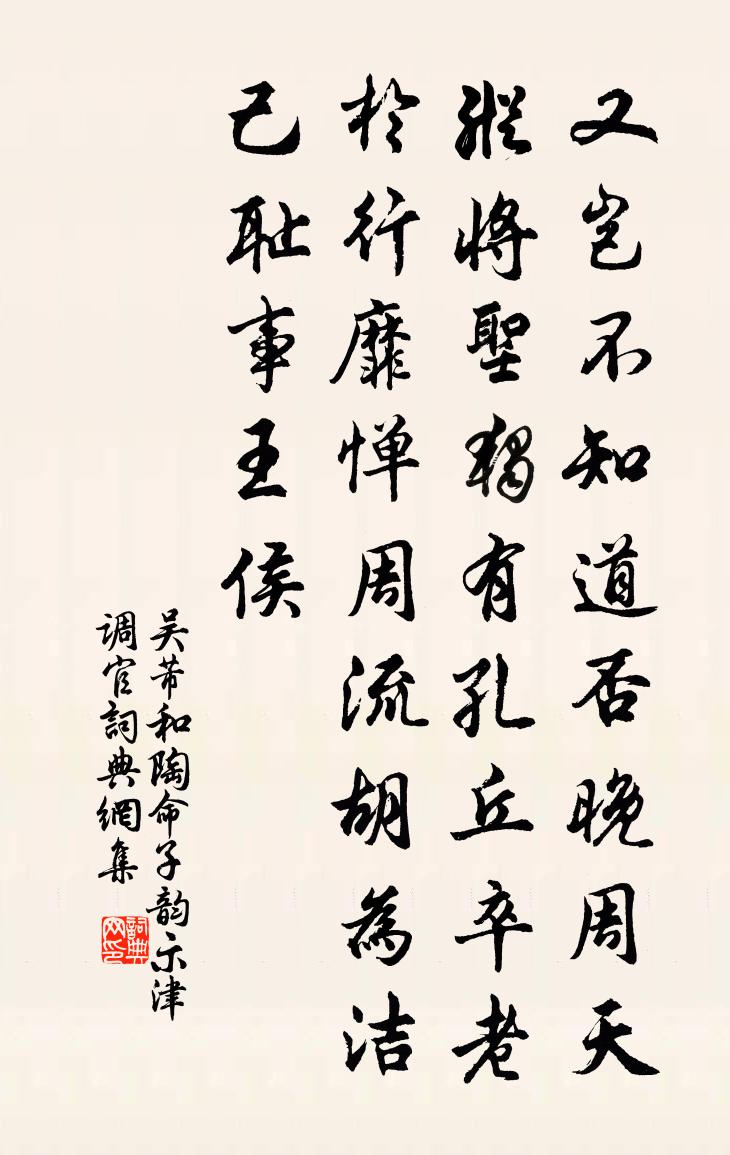 又岂不知道否晚周天
縱将聖獨有孔丘卒老
於行靡惮周流胡為洁
己耻事王侯
吴芾和陶命子韵示津
调官詞典網集
詞典网印